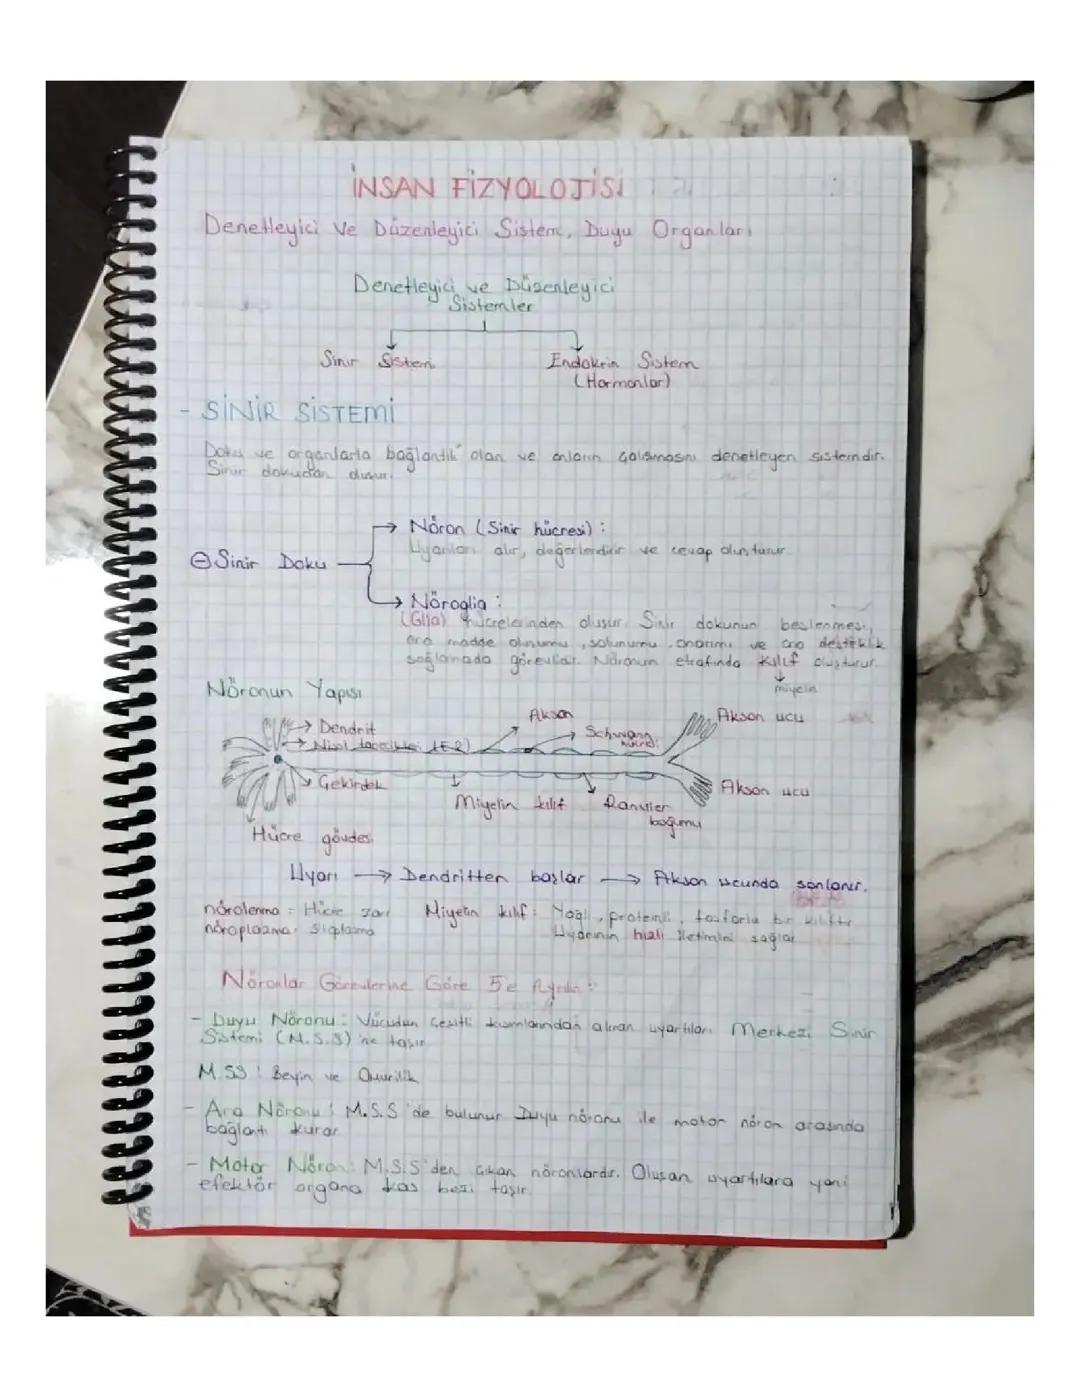 İNSAN FİZYOLOJİSİ
Denetleyici ve Düzenleyici Sistem, Duyu Organları
Denetleyici ve Düzenleyici
Sistemler
Sinir Sistemi
Endokrin Sistem
(Hormonlar)
- SİNİR SİSTEMİ
Doku ve organlarla bağlantılı olan ve onların çalışmasını denetleyen sistemdir.
Sinir dokudan oluşur.
→ Nöron (Sinir hücresi) :
Uyarıları alır, değerlendirir ve cevap oluşturur.
Sinir Doku
→ Nöroglia :
(Glia) hücrelerinden oluşur. Sinir dokunun beslenmesi,
ara madde oluşumu, solunumu, onarımı ve ona desteklik
sağlamada görevlidir. Nöronun etrafında kılıf oluşturur.
miyelin
Nöronun Yapısı
Akson
Akson ucu
Dendrit
Schwann
Nissl tanecikleri (ER)
Çekirdek
Akson ucu
Miyelin kılıf
Ranvier
boğumu
Hücre gövdesi
Uyarı → Dendritten başlar → Akson ucunda sonlanır.
nörolemma = Hücre zarı
Miyelin kılıf : Yağlı, proteinli, fosforlu bir kılıftır
nöroplazma: Sitoplazma
Uyarının hızlı iletimini sağlar
Nöronlar Görevlerine Göre 3'e Ayrılır :
- Duyu Nöronu : Vücudun çeşitli kısımlarından alınan uyartıları Merkezi Sinir
Sistemi (M.S.S)'ne taşır
M.SS : Beyin ve Omurilik
- Ara Nöronu : M.S.S'de bulunur Duyu nöronu ile motor nöron arasında
bağlantı kurar
- Motor Nöron : M.S.S'den çıkan nöronlardır. Oluşan uyartılara yani
efektör organa kas bezi taşır.